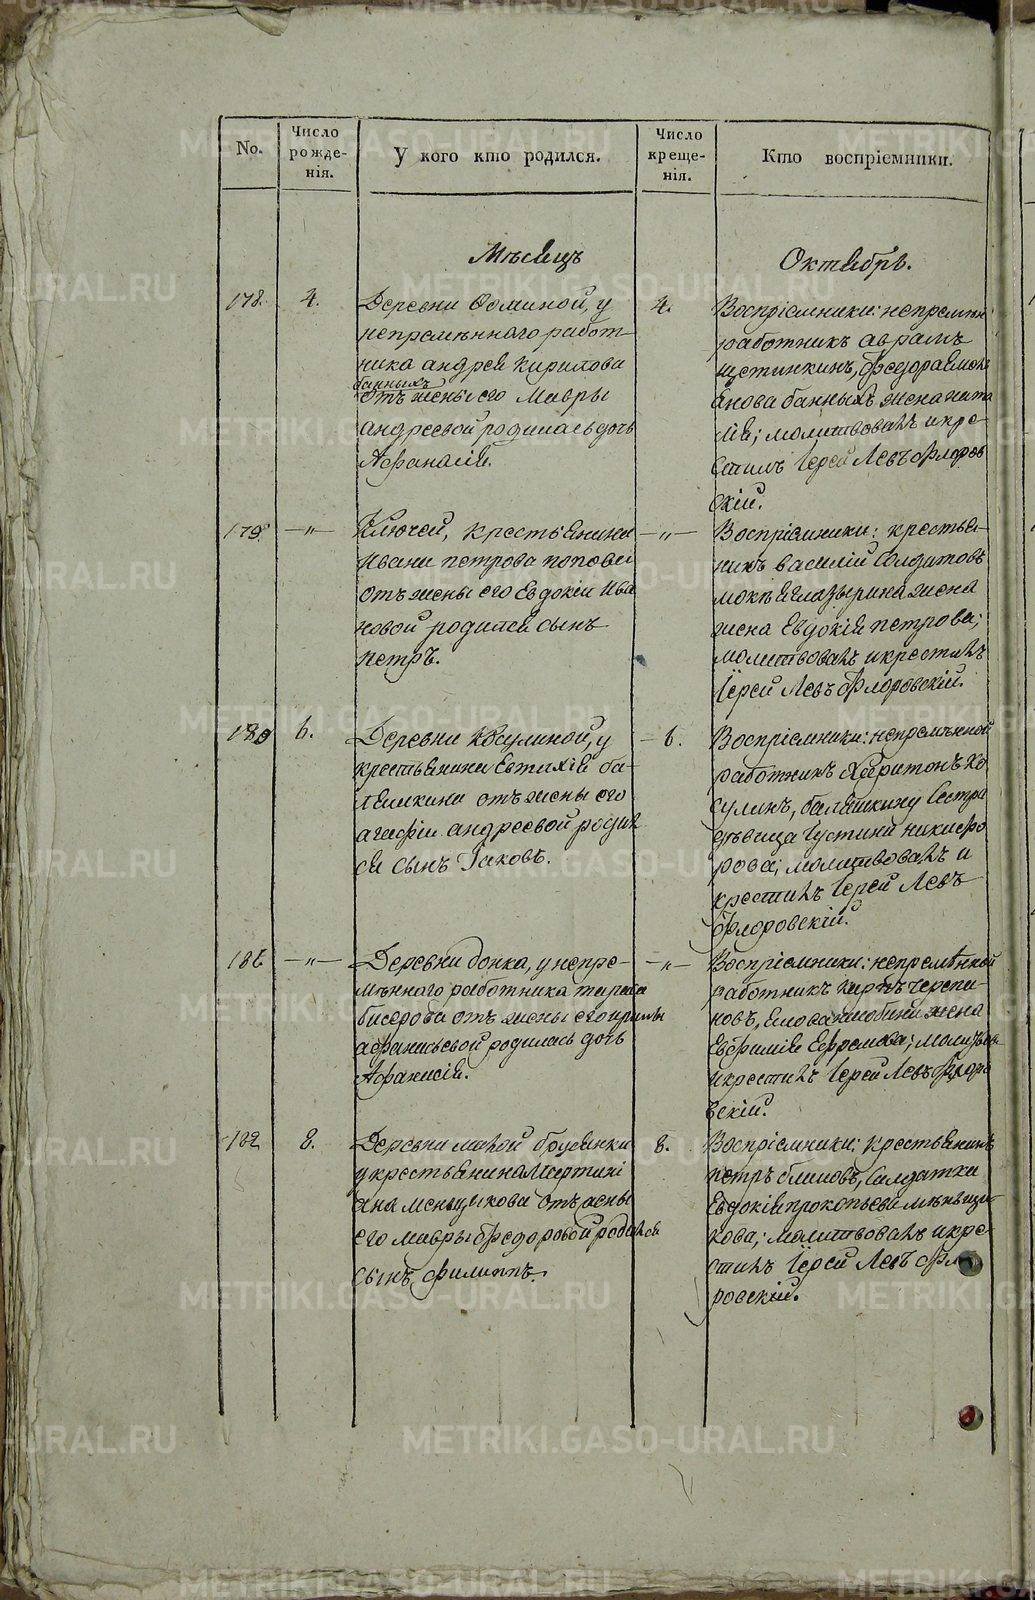 No.
Число рожде-
нія.
У кого кто родился.
Число креще-
нія.
Кто воспріемники.
Мѣсяцъ
Октябрь.
178.
4.
Деревни Фоминой, у
непремѣннаго работ
ника андрея Кирилова
банныхъ
отъ жены его Мавры
андреевой родилась дочь
Афанасія.
4.
Воспріемники: непремѣн
работникъ аврамъ
щетинкинъ, федора
банныхъ жена
молитвовалъ и кре-
стилъ Іерей Левъ Флоров
скій.
179.
—„—
Ключей, крестьянина
Ивана петрова попова
отъ жены его Евдокіи Ива
новой родился сынъ
петръ.
—„—
Воспріемники: крестья-
нинъ василій Солдатовъ
глазырина жена
жена Евдокія петрова;
молитвовалъ и крестилъ
Іерей Левъ Флоровскій.
180
6.
Деревни Косулиной, у
крестьянина Евтихія ба-
лякина отъ жены его
агафіи андреевой родил
ся сынъ Іаковъ.
6.
Воспріемники: непремѣнной
работникъ Харитонъ Ко
сулинъ, сестра
дѣвица Іустина никифо
рова; молитвовалъ и
крестилъ Іерей Левъ
Флоровскій.
181
—„—
Деревни боика, у непре-
мѣннаго работника тараса
бисерова отъ жены его ирины
афанасьевой родилась дочь
Афанасія.
—„—
Воспріемники: непремѣнной
работникъ черепа-
новъ, жена
Евфимія Ефремова; молитвов
и крестилъ Іерей Левъ Флоро
вскій.
182
8.
Деревни малой брусянки
у крестьянина Мартині
ана меньщикова отъ жены
его мавры федоровой родился
сынъ филиппъ.
8.
Воспріемники: крестьянинъ
петръ блиновъ, Салдатка
Евдокія прокопьева меньщи-
кова; молитвовалъ и кре-
стилъ Іерей Левъ Фло
ровскій.
METRIKI.GASO-URAL.RU